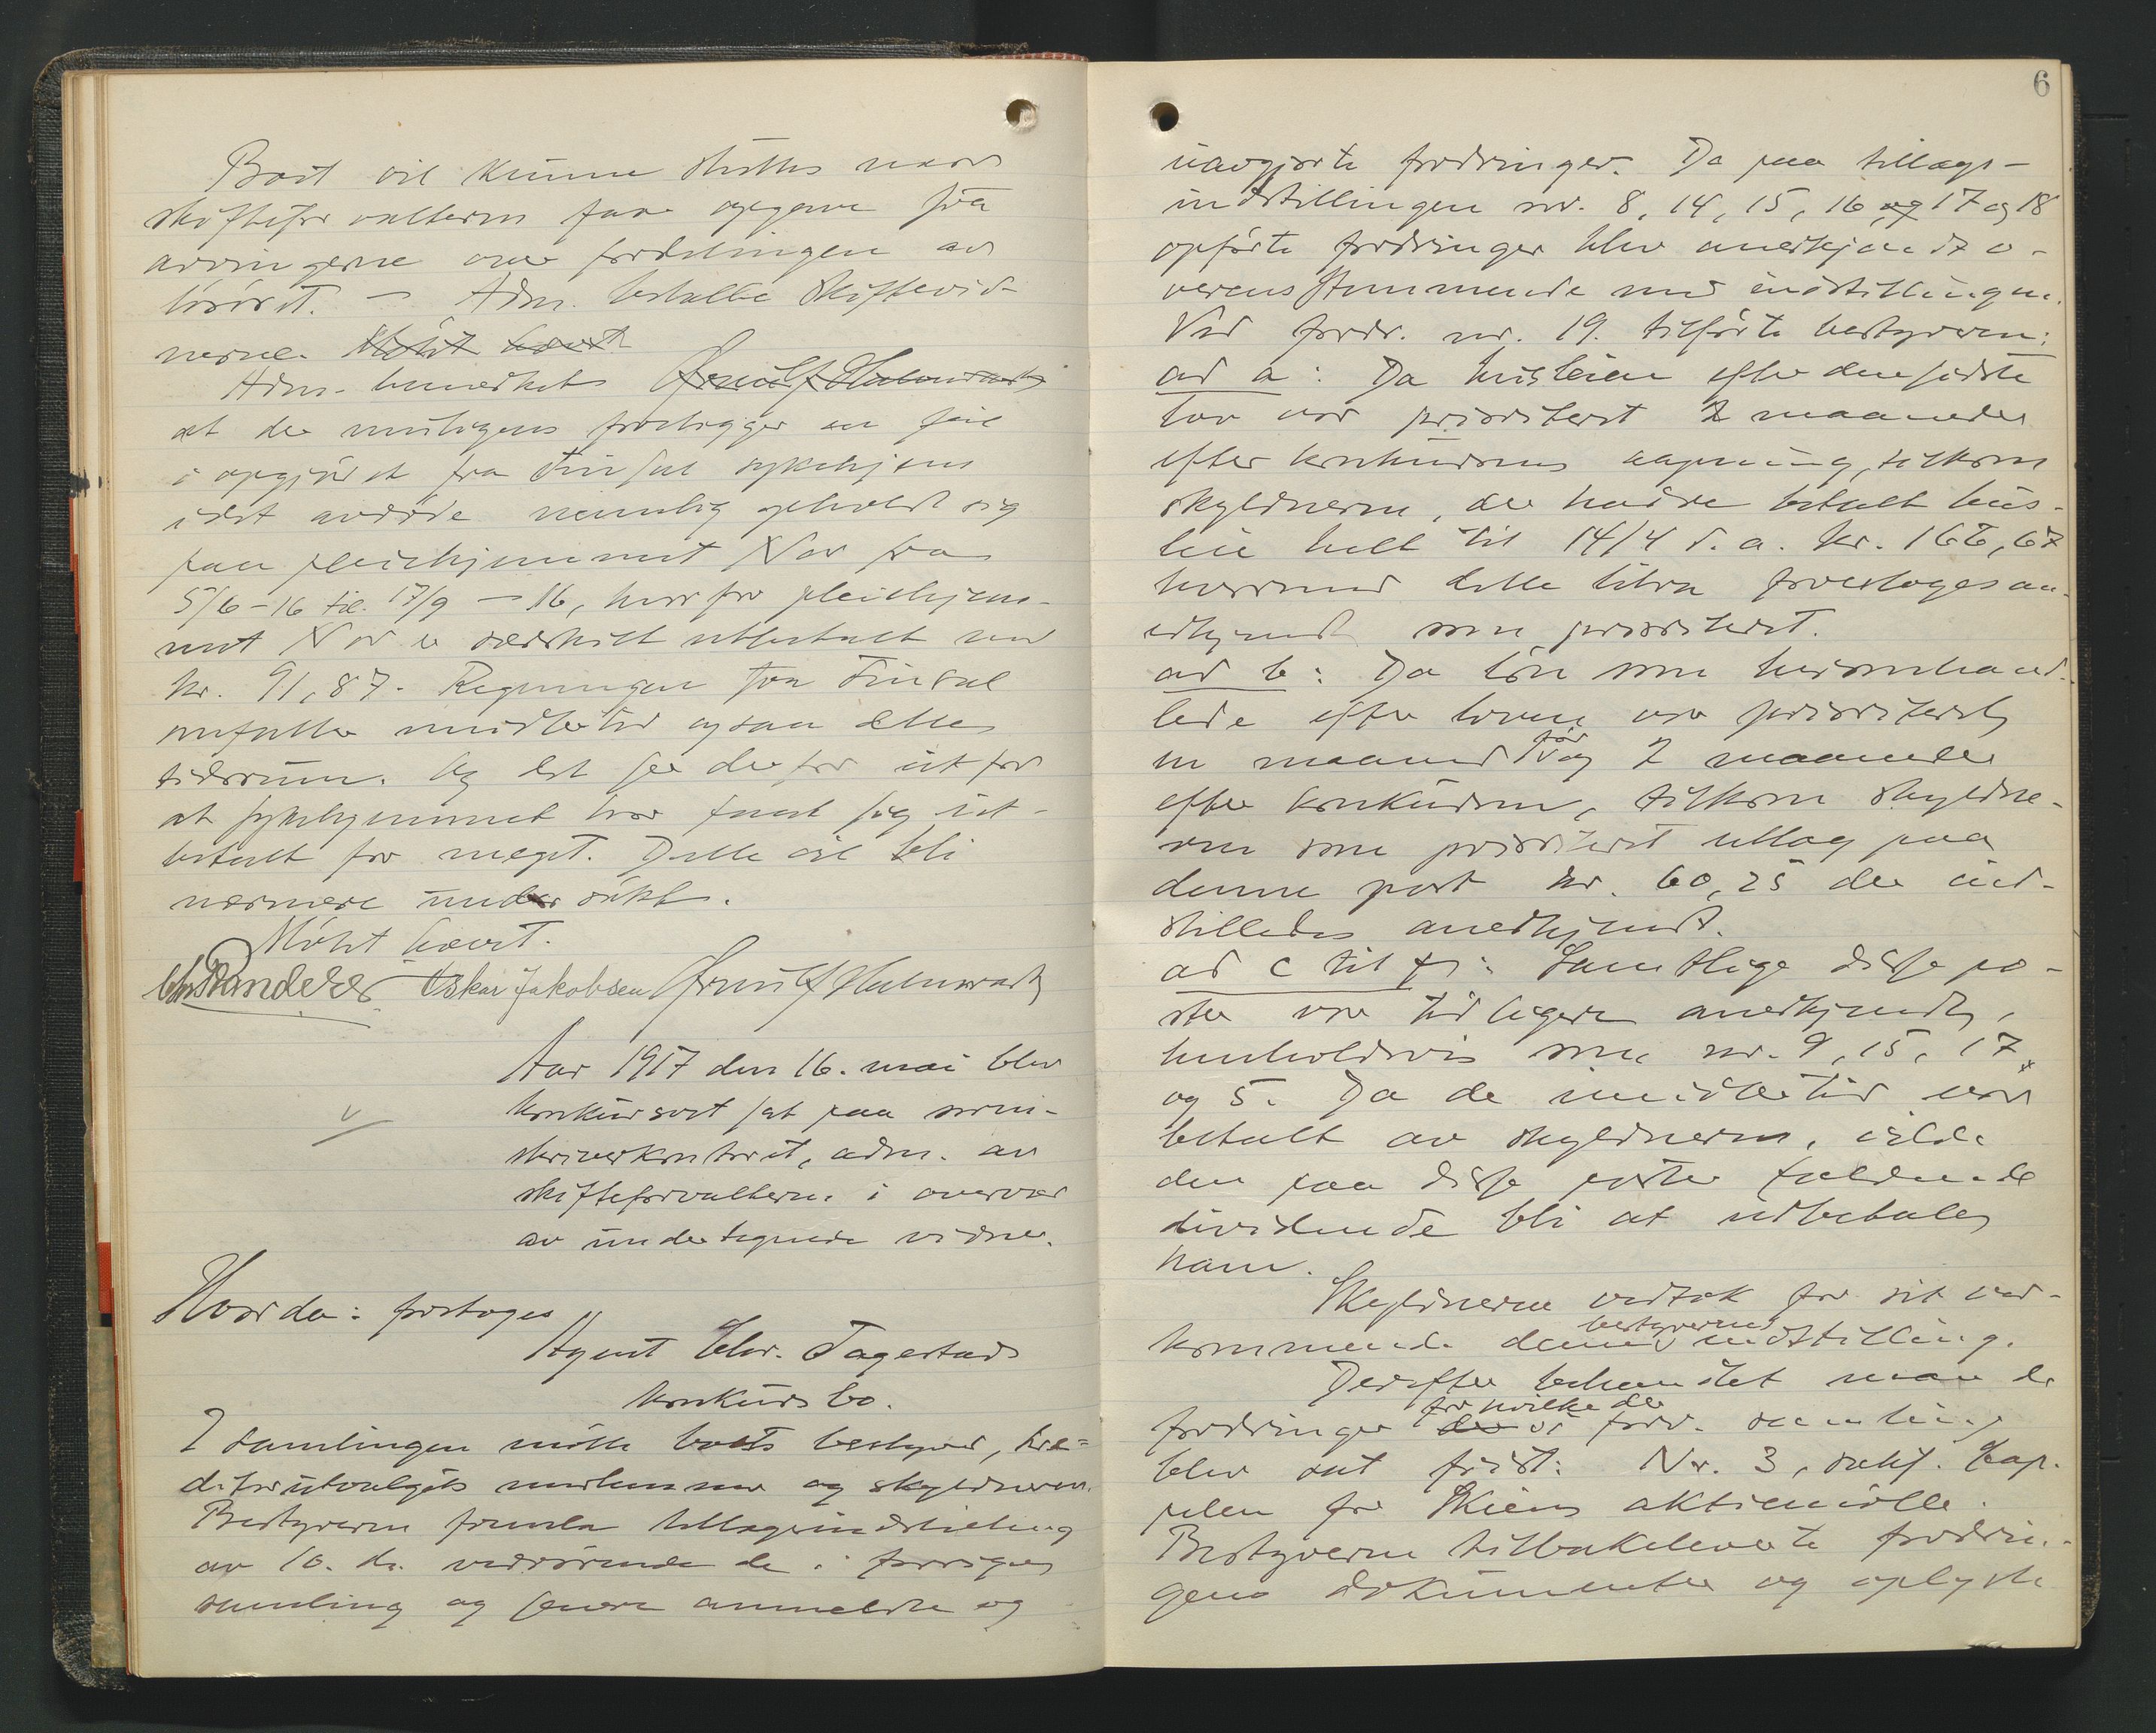 Boet vil kunne sluttes naar
skifteforvalteren faar opgave fra
arvingerne over fordelingen av
løsøret. — Adm. betalte skiftevid-
nerne. Møtet hævet
Adm. bemerket
at der muligens foreligger en feil
i opgjøret fra Finsal sykehjem
idet avdøde nemlig opholdt sig
paa pleiehjemmet Nor fra
5/6 - 16 til 17/9 - 16, hvorfor pleiehjem-
met Nor er særskilt utbetalt med
kr. 91,87. Regningen fra Finsal
omfatter imidlertid ogsaa dette
tidsrum. Og det ser derfor ut for
at sykehjemmet har faat sig ut-
betalt for meget. Dette vil bli
nærmere undersøkt.
Møtet hævet.
Oskar Jakobsen
Aar 1917 den 16. mai blev
konkursret sat paa soren-
skriverkontoret, adm. av
skifteforvalteren i overvær
av undertegnede vidner.
Hvorda: foretoges
Agent Chr. Fagestads
konkursbo.
I samlingen møtte boets bestyrer, kre-
ditorutvalgets medlemmer og skyldneren.
Bestyreren fremla tillægsindstilling
av 10. ds. vedrørende de i forrige
samling og senere anmeldte og
6
uavgjorte fordringer. De paa tillægs-
indstillingen nr. 8, 14, 15, 16 og 17 og 18
opførte fordringer blev anerkjendt o-
verensstemmende med indstillingen.
Ved fordr. nr. 19. tilførte bestyreren:
ad a: Da husleien efter den sidste
lov var prioritert 2 maaneder
efter konkursens aapning, tilkom
skyldneren, der hadde betalt hus-
leie helt til 14/4 d. a. kr. 166,67
hvormed dette blev foreslaaes an-
erkjendt som prioritert.
ad b: Da løn som
efter loven var prioritert
en maaned før og 2 maaneder
efter konkursen, tilkom skyldne-
ren som prioritert utlæg paa
denne post kr. 60,25 der ind-
stilledes anerkjendt.
ad c til f: Samtlige disse po-
ster var tidligere anerkjendt,
henholdsvis som nr. 9, 15, 17
og 5. Da de imidlertid var
betalt av skyldneren, vilde
den paa disse poster faldende
dividende bli at utbetales
ham.
Skyldneren vedtok for sit ved-
kommende denne bestyrerens indstilling.
Derefter behandlet man de
fordringer der for hvilke der i forr. samling
blev sat frist: Nr. 3, saksf. Cap-
pelen for Skiens aktiemølle.
Bestyreren tilbakeleverte fordrin-
gens dokumenter og oplyste